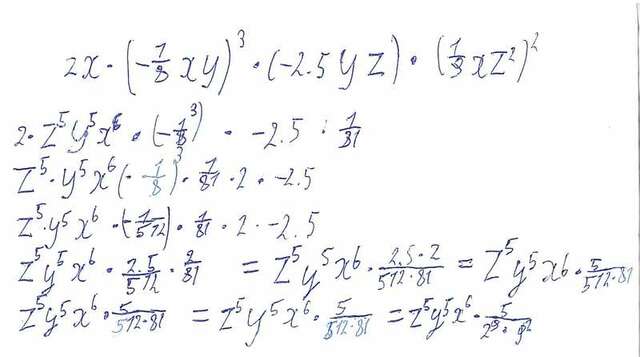 2x · (-1/8 xy)^3 · (-2.5 y z) · (1/9 x z^2)^2
2 · z^5 y^5 x^6 · (-1/8^3) · -2.5 · 1/81
z^5 · y^5 x^6 (-1/8)^3 · 1/81 · 2 · -2.5
z^5 · y^5 x^6 · (-1/512) · 1/81 · 2 · -2.5
z^5 y^5 x^6 · 2.5/512 · 2/81 = z^5 y^5 x^6 · 2.5·2/512·81 = z^5 y^5 x^6 · 5/512·81
z^5 y^5 x^6 · 5/512·81 = z^5 y^5 x^6 · 5/512·81 = z^5 y^5 x^6 · 5/2^9 · 9^2